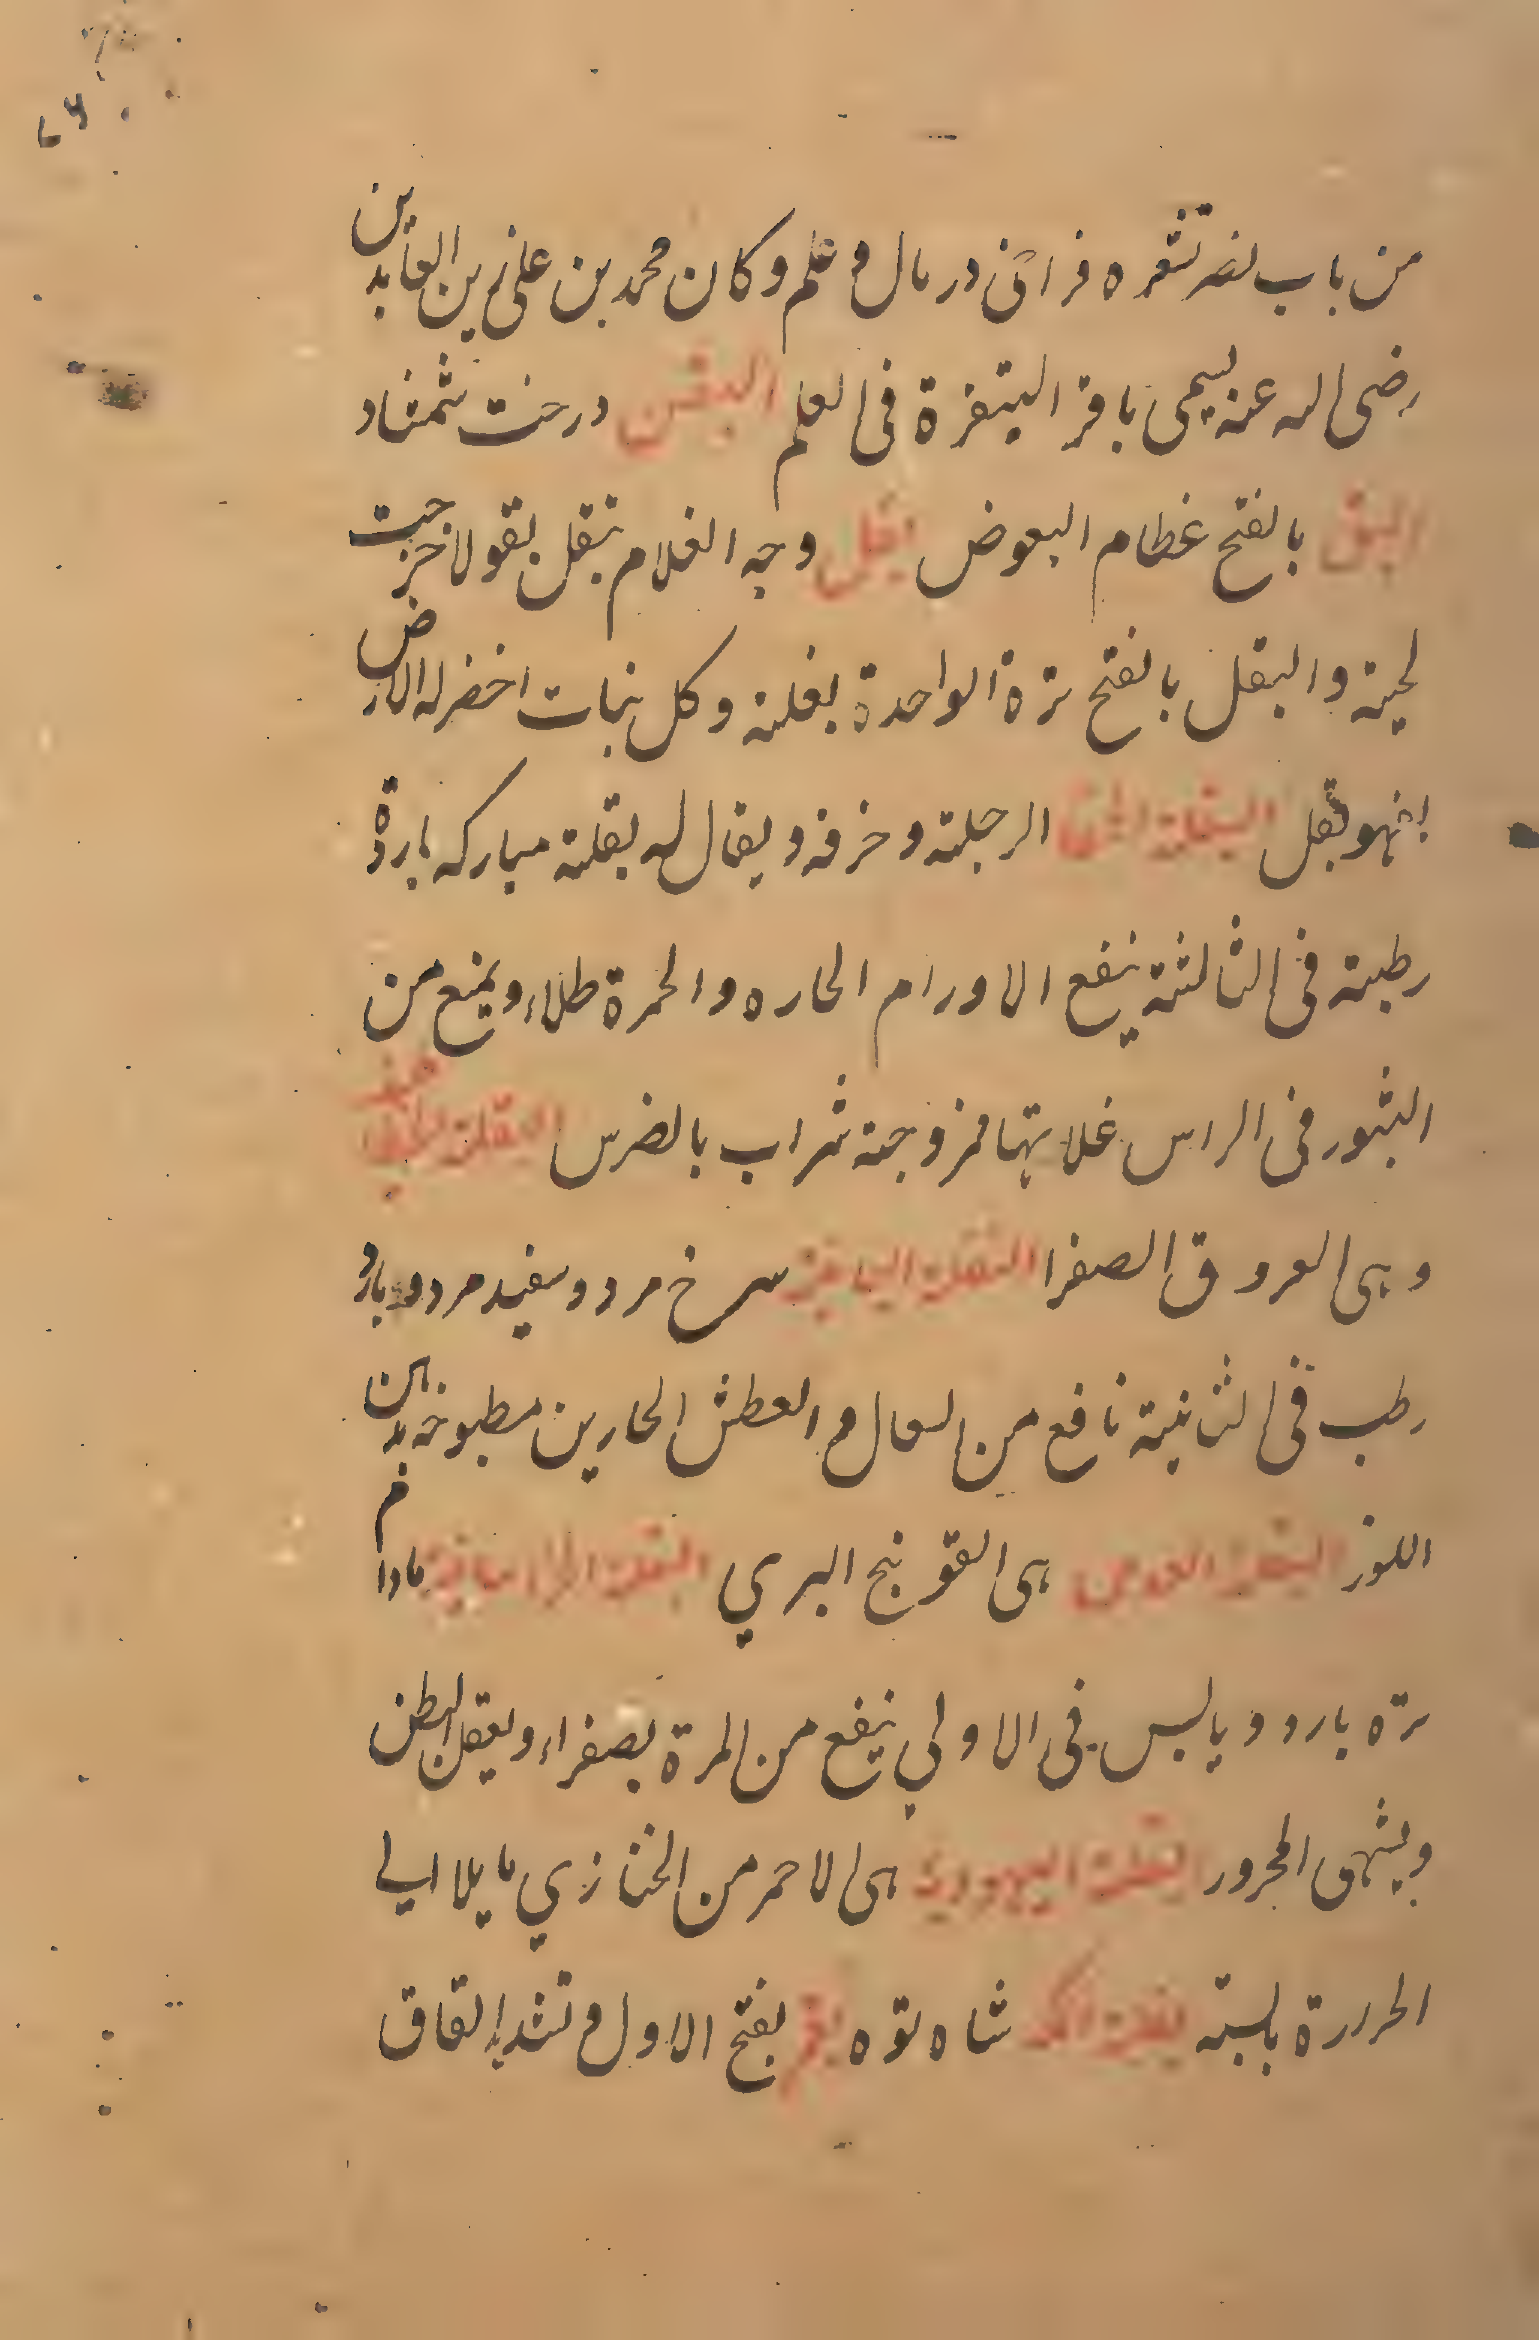 من باب نصر تبقره فراخی در مال و علم وکان محمد بن علی زین العابدین
رضی الله عنه یسمی باقر التبقره فی العلم البقس درخت شمشاد
البق بالفتح عظام البعوض بقل وجه الغلام یبقل بقولا خرجت
لحیته والبقل بالفتح تره الواحدة بقلة وکل نبات اخضر له الارض
فهو بقل البقلة الحمقا الرجلة وخرفه ویقال له بقلة مبارکه باردة
رطبة فی الثالثة ینفع الاورام الحاره والحمرة طلاء ویمنع من
البثور فی الراس غلایتها ممزوجة شراب بالضرس البقلة الخطاطیف
وهی العروق الصفرا البقلة الیمانیة سرخ مرد و سفید مرد و بارد
رطب فی الثانیة نافع من السعال والعطش الحارین مطبوخه بدهن
اللوز البقلة العدس هی الفوتنج البری البقلة الخراسانیة مادام
تره بارد و یابس فی الاولی ینفع من المرة الصفراء ویعقل البطن
ویشهی المحرور البقلة الیهودیة هی الاحمر من الخبازی مایلا الی
الحرارة یابسة بقلة الملک شاه تره بقم بفتح الاول و تشدید القاف